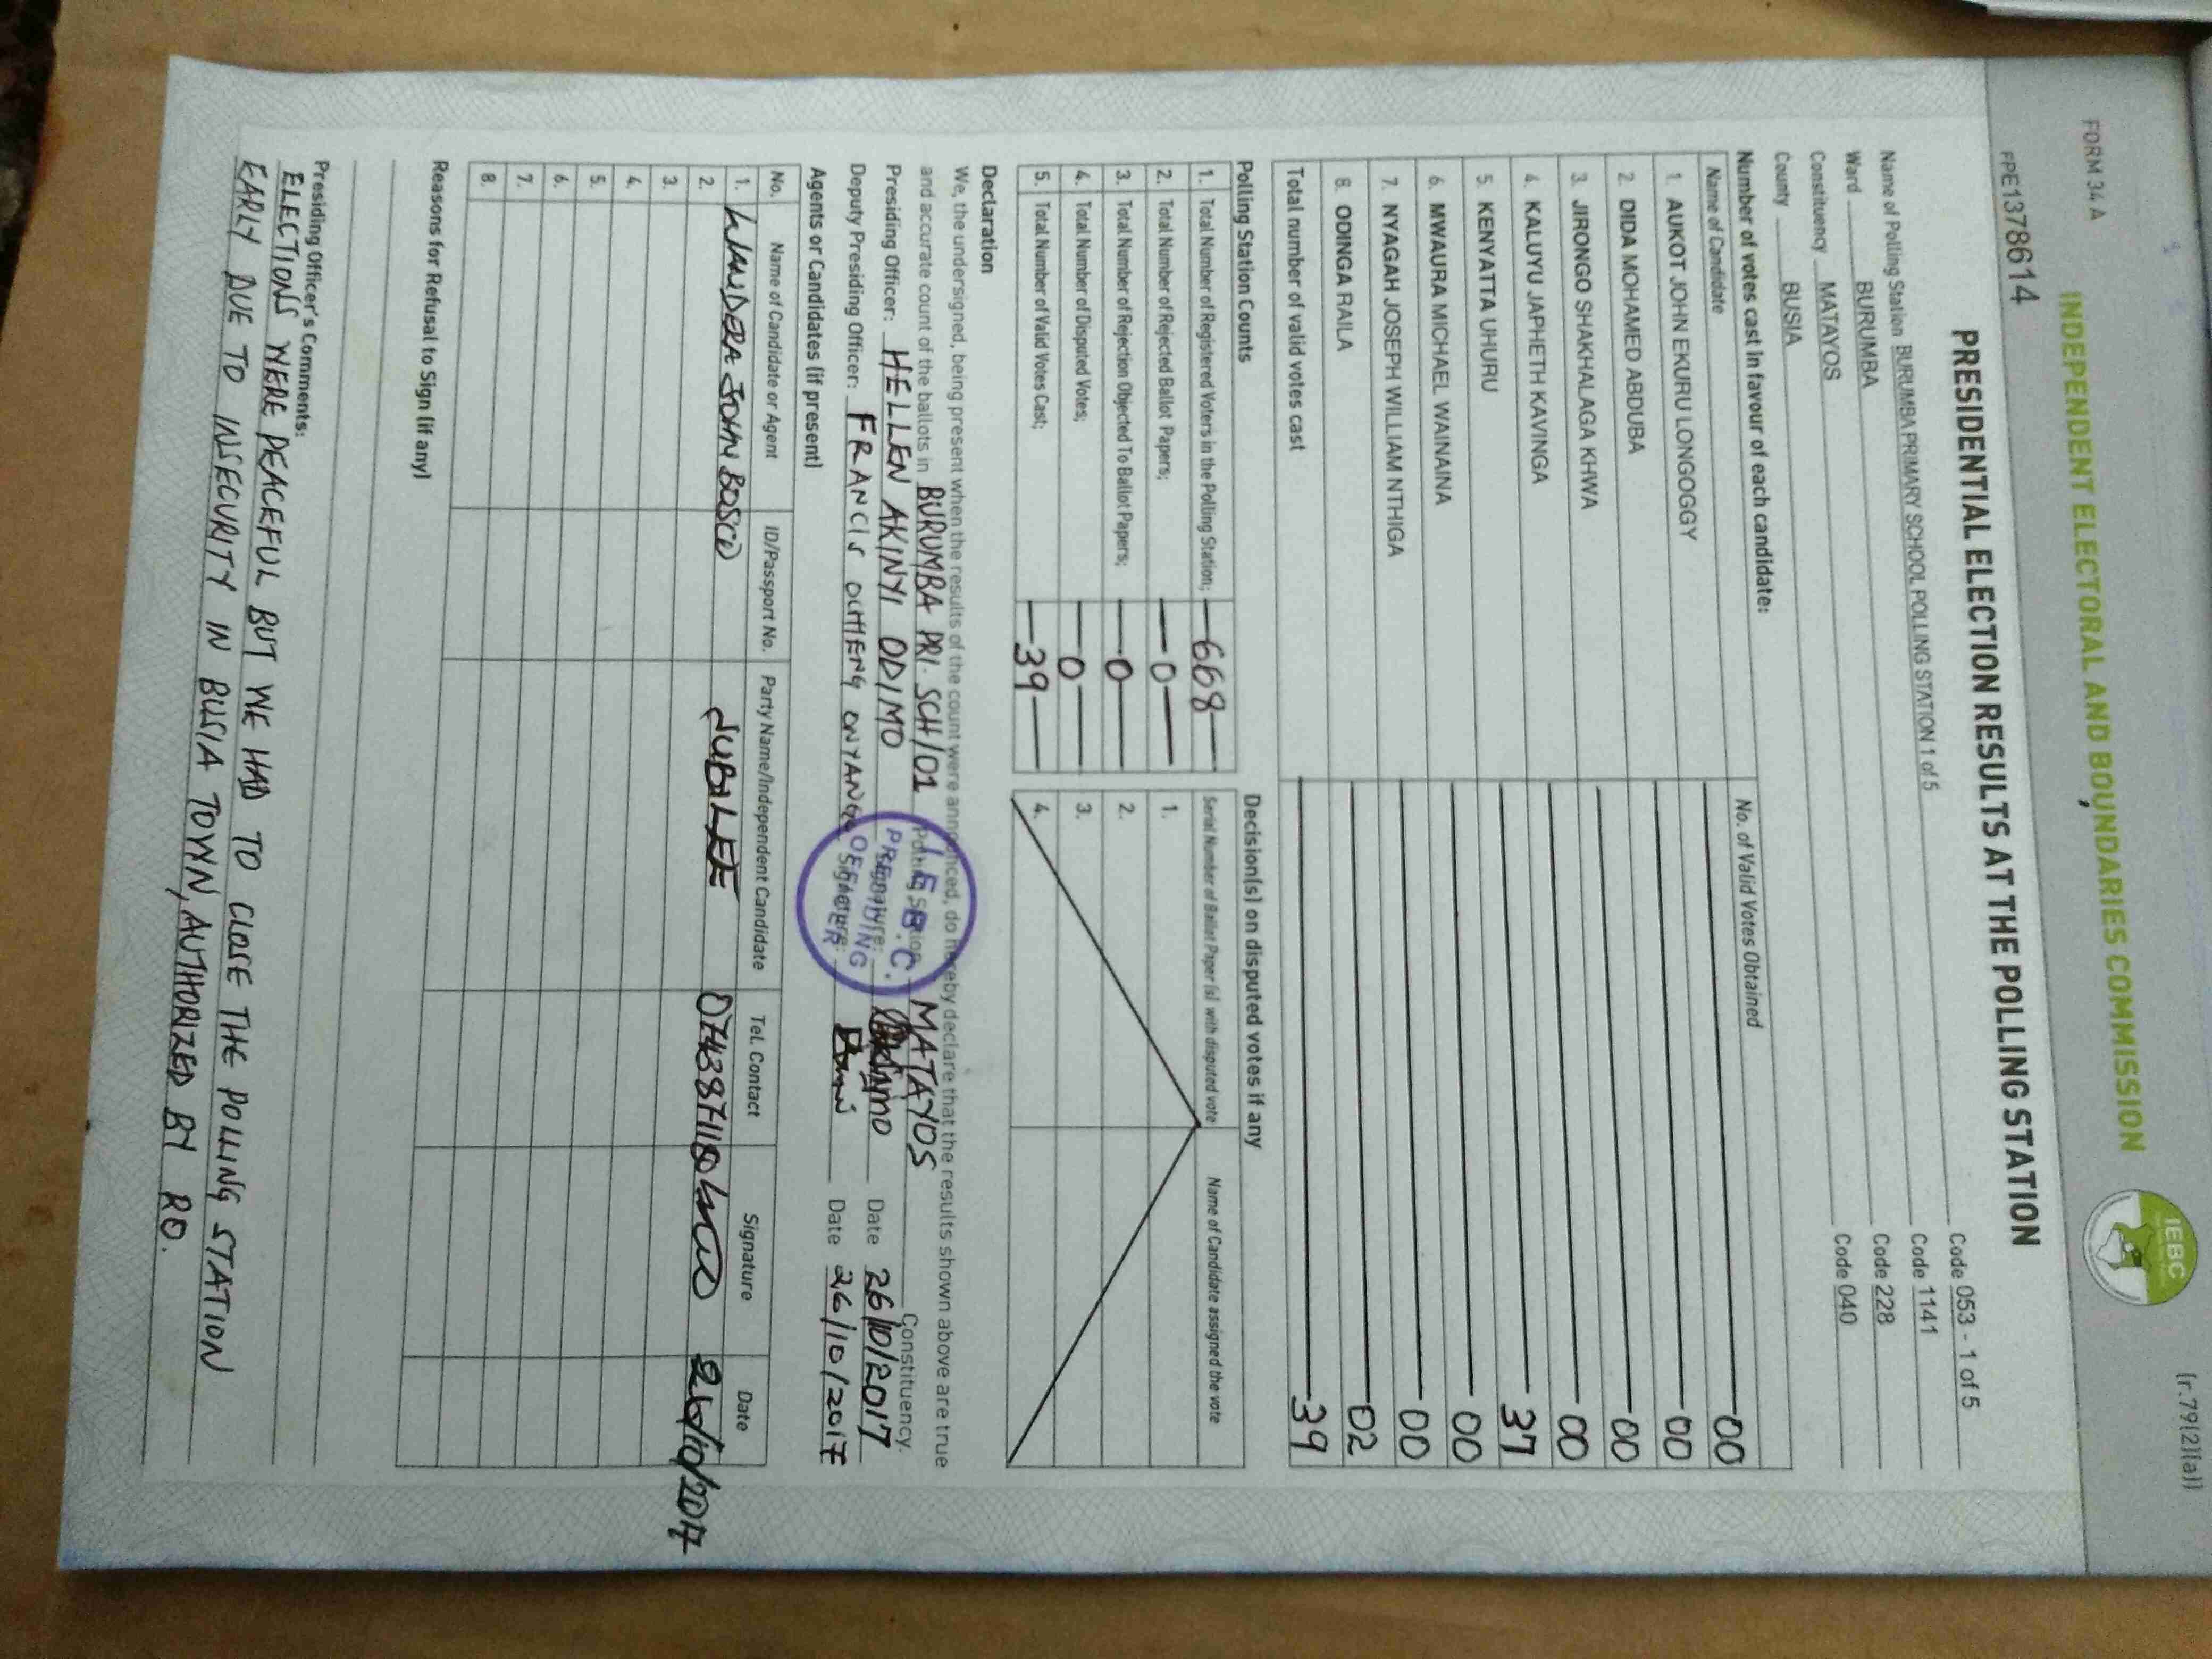 FORM 34 A
(r.79(2)(a))
INDEPENDENT ELECTORAL AND BOUNDARIES COMMISSION
IEBC
PPE1378614
PRESIDENTIAL ELECTION RESULTS AT THE POLLING STATION
Name of Polling Station BURUMBA PRIMARY SCHOOL POLLING STATION 1 of 5 Code 053 - 1 of 5
Ward BURUMBA Code 1141
Constituency MATAYOS Code 228
County BUSIA Code 040
Number of votes cast in favour of each candidate:
Name of Candidate No. of Valid Votes Obtained
1. AUKOT JOHN EKURU LONGOGGY 00
2. DIDA MOHAMED ABDUBA 00
3. JIRONGO SHAKHALAGA KHWA 00
4. KALUYU JAPHETH KAVINGA 00
5. KENYATTA UHURU 37
6. MWAURA MICHAEL WAINAINA 00
7. NYAGAH JOSEPH WILLIAM NTHIGA 00
8. ODINGA RAILA 02
Total number of valid votes cast 39
Polling Station Counts
1. Total Number of Registered Voters in the Polling Station; 668
2. Total Number of Rejected Ballot Papers; 0
3. Total Number of Rejection Objected To Ballot Papers; 0
4. Total Number of Disputed Votes; 0
5. Total Number of Valid Votes Cast; 39
Decision(s) on disputed votes if any
Serial Number of Ballot Paper (s) with disputed vote Name of Candidate assigned the vote
1.
2.
3.
4.
Declaration
We, the undersigned, being present when the results of the count were announced, do hereby declare that the results shown above are true
and accurate count of the ballots in BURUMBA PRI. SCH/01 Polling Station MATAYOS Constituency.
Presiding Officer: HELLEN AKINYI ODIMO Signature: Date 26/10/2017
Deputy Presiding Officer: FRANCIS OCHIENG ONYANGO Signature: Date 26/10/2017
I.E.B.C.
PRESIDING
OFFICER
Agents or Candidates (if present)
No. Name of Candidate or Agent ID/Passport No. Party Name/Independent Candidate Tel. Contact Signature Date
1. JOHN BOSCO JUBILEE 26/10/2017
2.
3.
4.
5.
6.
7.
8.
Reasons for Refusal to Sign (if any)
Presiding Officer's Comments:
ELECTIONS WERE PEACEFUL BUT WE HAD TO CLOSE THE POLLING STATION
EARLY DUE TO INSECURITY IN BUSIA TOWN, AUTHORIZED BY RO.